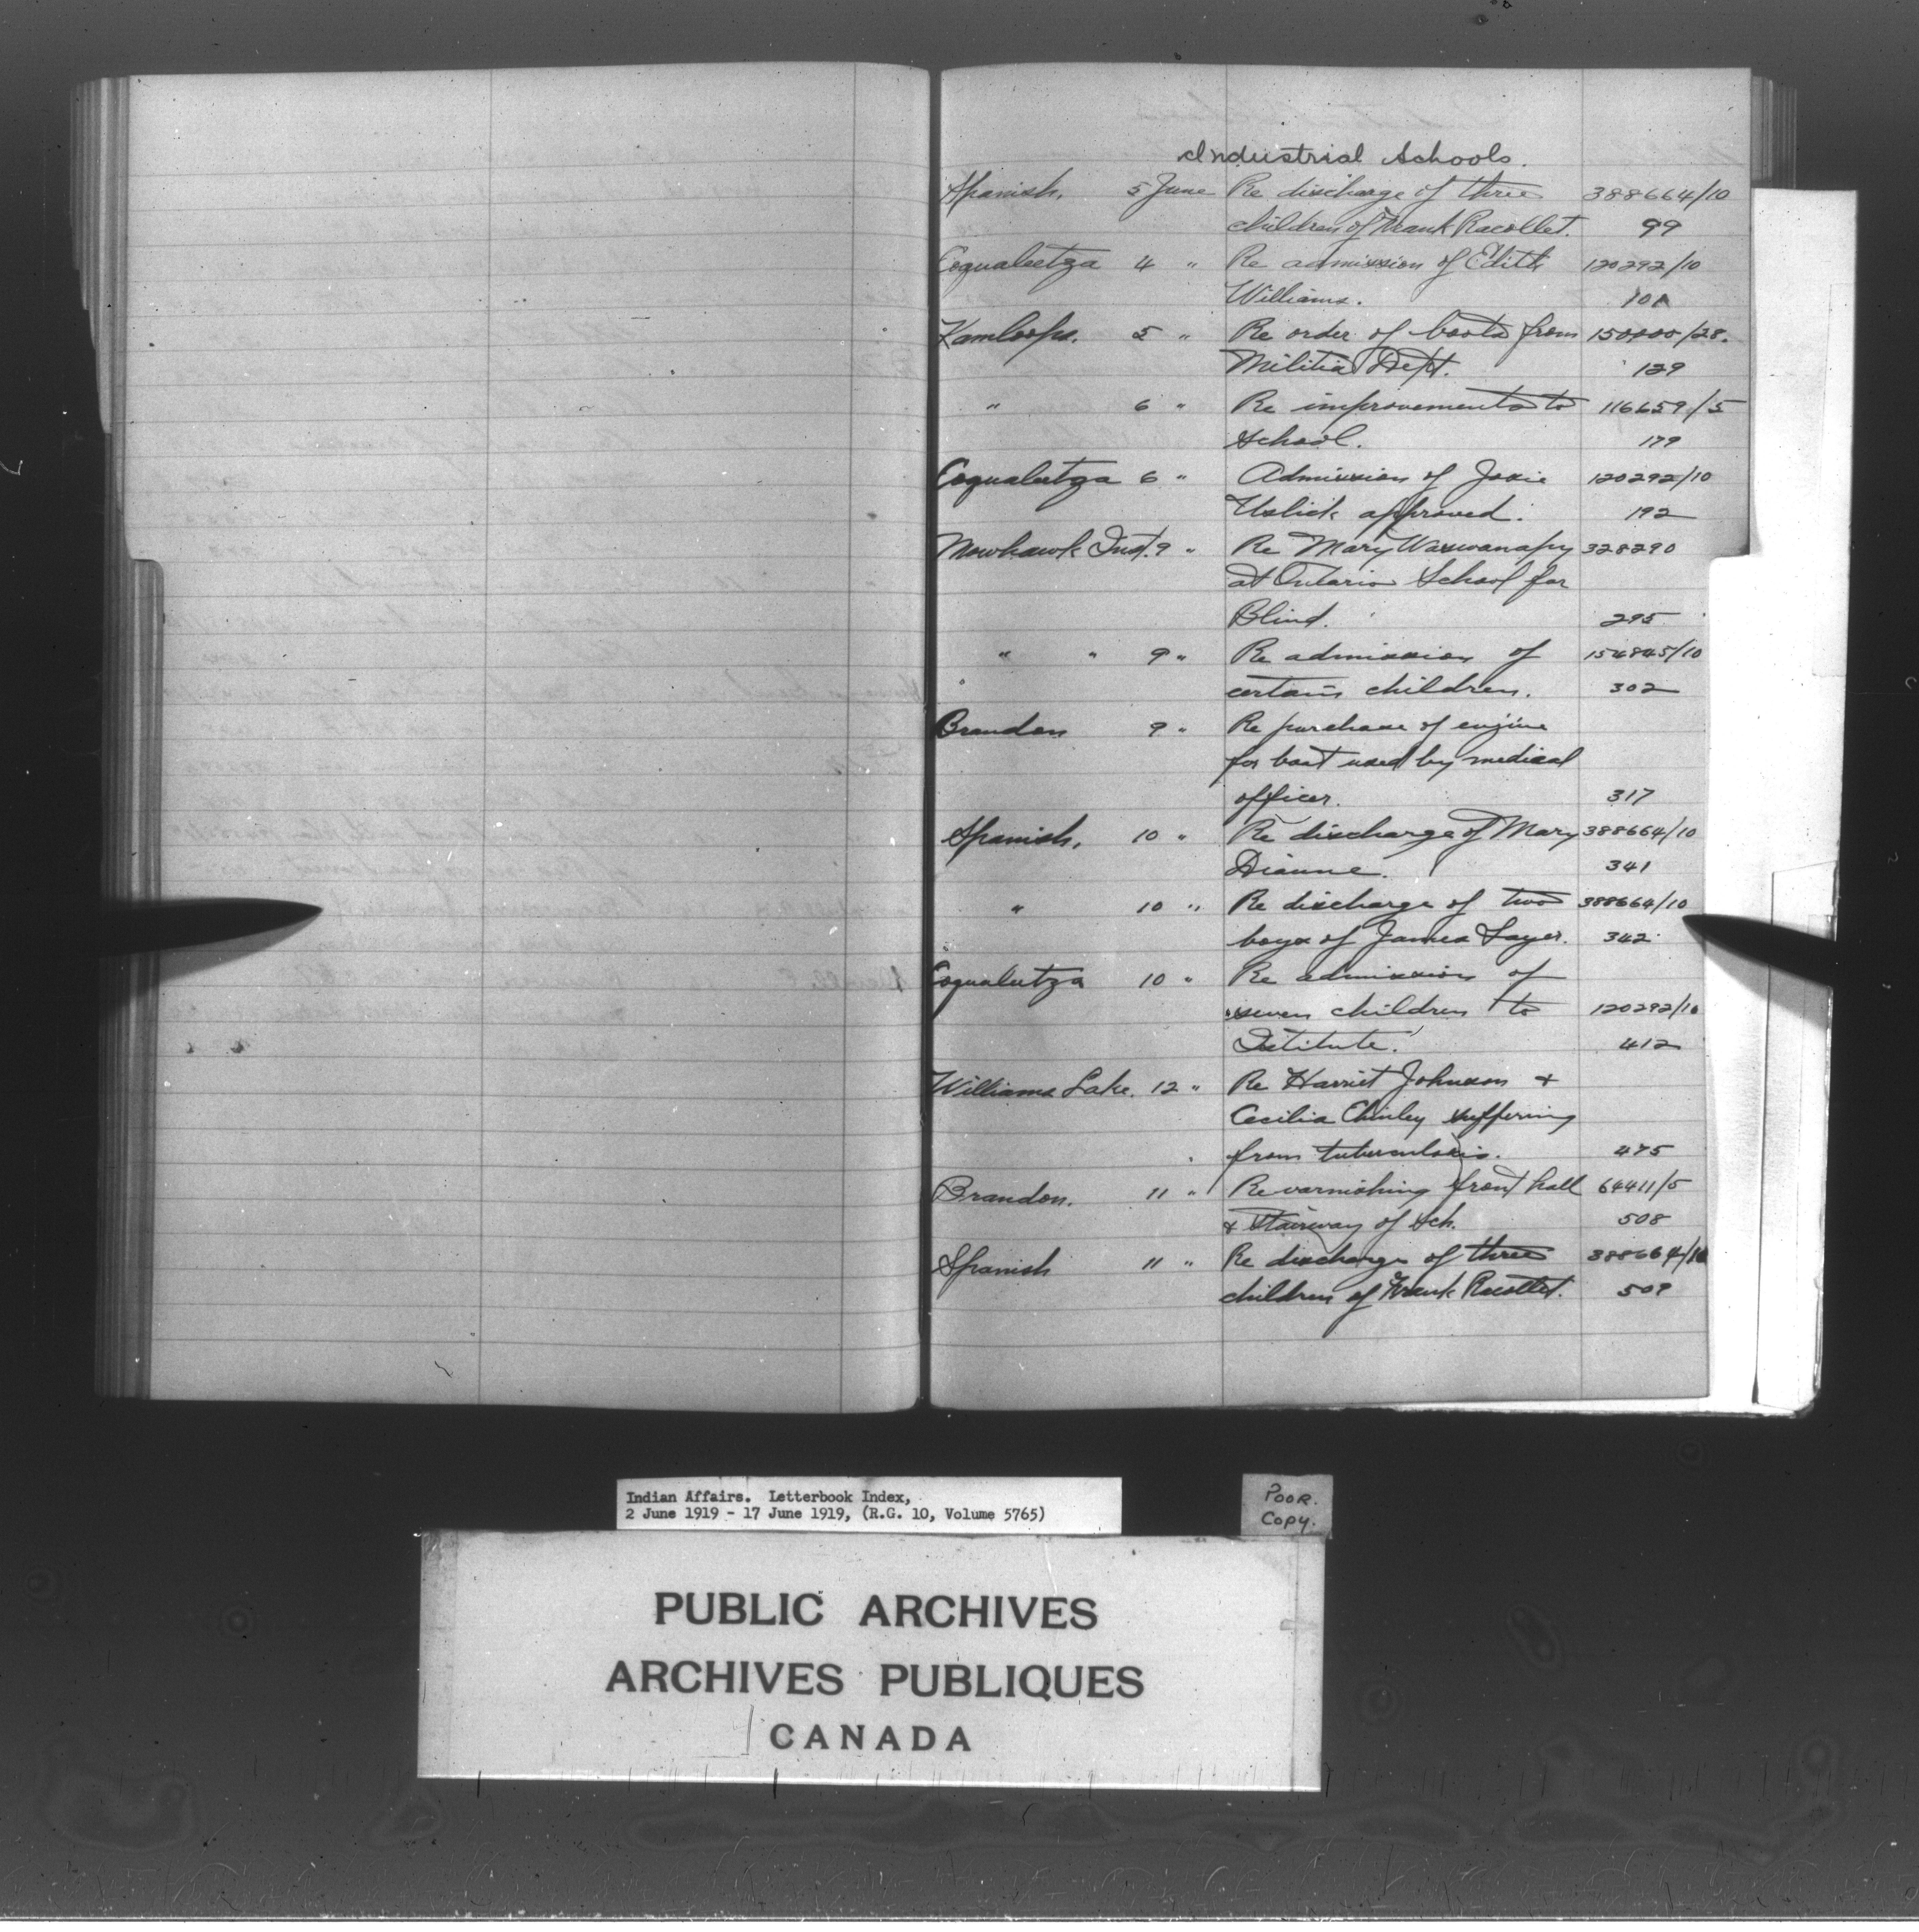 Industrial Schools.
Spanish. 5 June Re discharge of three 388664/10
children of Frank Racollet. 99
Coqualeetza 4 " Re admission of Edith 120292/10
Williams. 101
Kamloops. 5 " Re order of boots from 150000/28.
Militia Dept. 129
" 6 " Re improvements to 116659/5
School. 179
Coqualeetza 6 " Admission of Josie 120292/10
Uslick approved. 192
Mowhawk Inst. 9 " Re Mary 328290
at Ontario School for
Blind. 295
" " 9 " Re admission of 154845/10
certain children. 302
Brandon 9 " Re purchase of engine
for boat used by medical
officer. 317
Spanish. 10 " Re discharge of Mary 388664/10
Dianne. 341
" 10 " Re discharge of two 388664/10
boys of James Sayer. 342
Coqualeetza 10 " Re admission of
seven children to 120292/10
Institute. 412
Williams Lake. 12 " Re Harriet Johnson +
Cecilia suffering
from tuberculosis. 475
Brandon. 11 " Re varnishing front hall 64411/5
& Stairway of Sch. 508
Spanish 11 " Re discharge of three 388664/10
children of Frank Racollet. 509
Indian Affairs. Letterbook Index,
2 June 1919 - 17 June 1919, (R.G. 10, Volume 5765)
POOR.
Copy.
PUBLIC ARCHIVES
ARCHIVES PUBLIQUES
CANADA